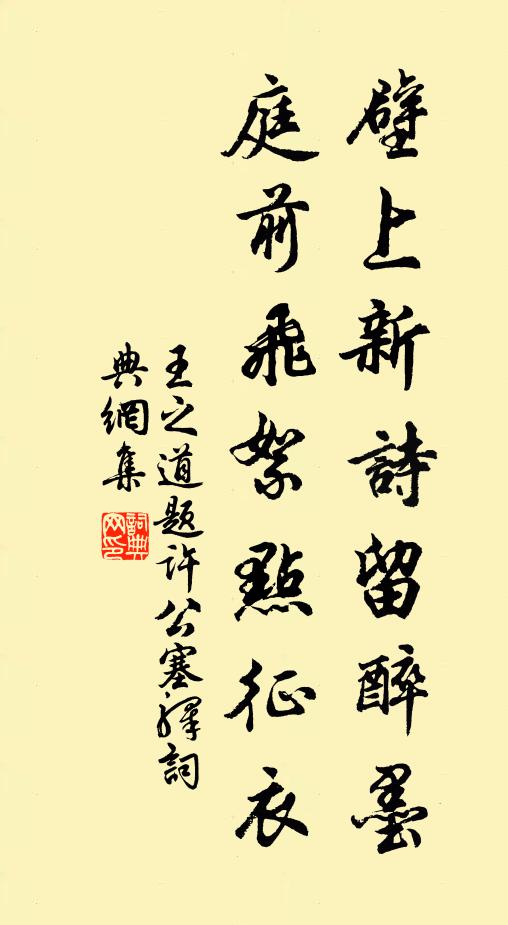 壁上新詩留醉墨
庭前飛絮點征衣
王之道題許公塞驛詞
典網集
詞典
网印